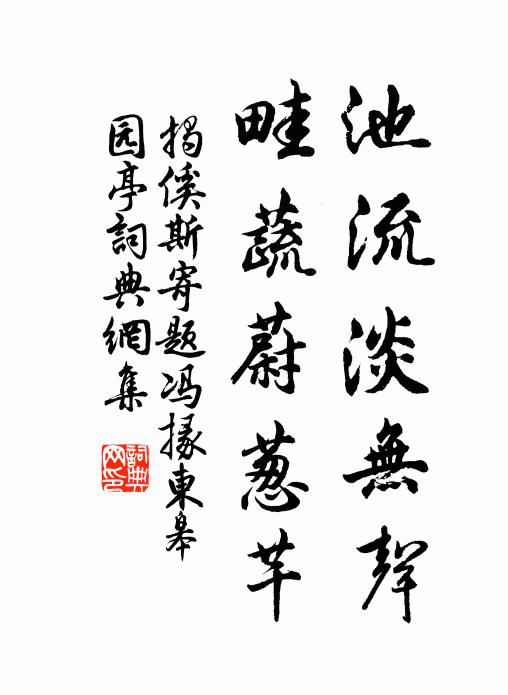 池流淡無聲
畦蔬蔚葱芊
揭傒斯寄题冯掾東皋
园亭詞典網集
詞典网印